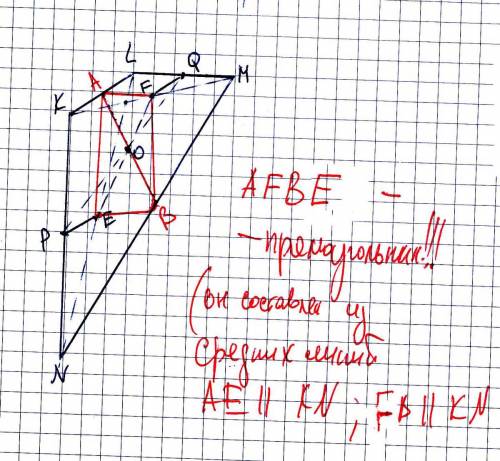 L
Q
M
A
F
K
O
P
E
B
N
AFBE —
— прямоугольник!!!
(он составлен из
средних линий
AE || KN ; FB || KN